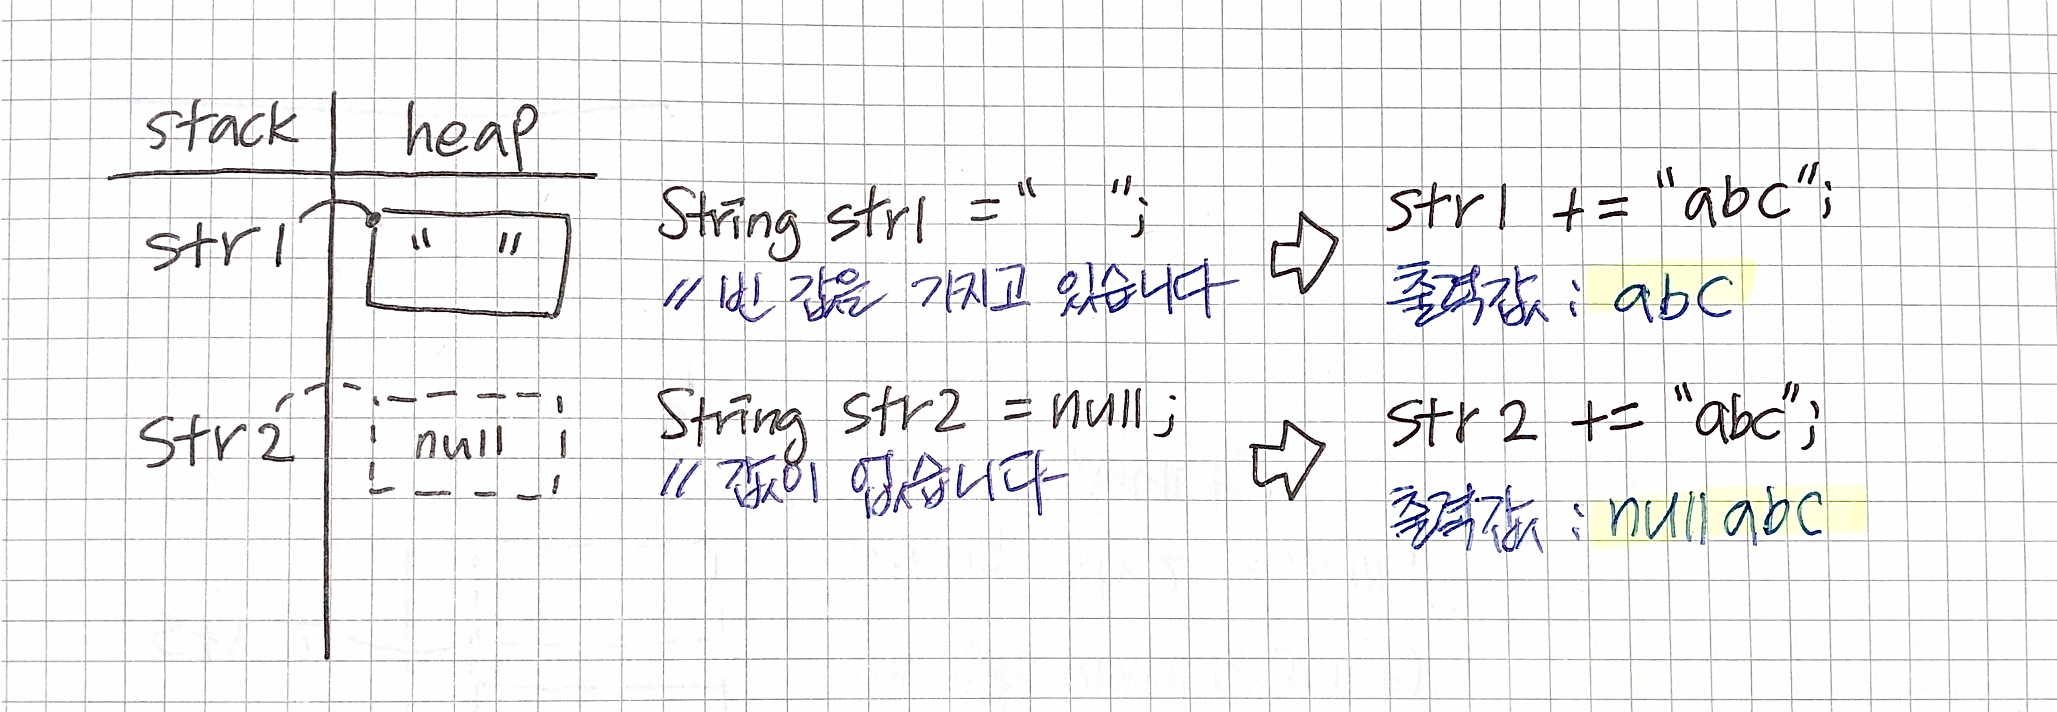 stack heap
str1 " "
String str1 = " ";
// 빈 값을 가지고 있습니다
str1 += "abc";
출력값 : abc
str2 null
String str2 = null;
// 값이 없습니다
str2 += "abc";
출력값 : nullabc